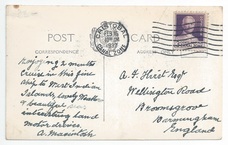 POST CARD
CORRESPONDENCE
CRISTOBAL
FEB
1937
CANAL ZONE
Enjoying 2 months
Cruise in this fine
ship to West Indian
Islands, lovely Weather
& beautiful
interesting land
motor drives.
A. Macintosh
A. J. Hirst Esq
Wellington Road
Bromsgrove
Birmingham
England